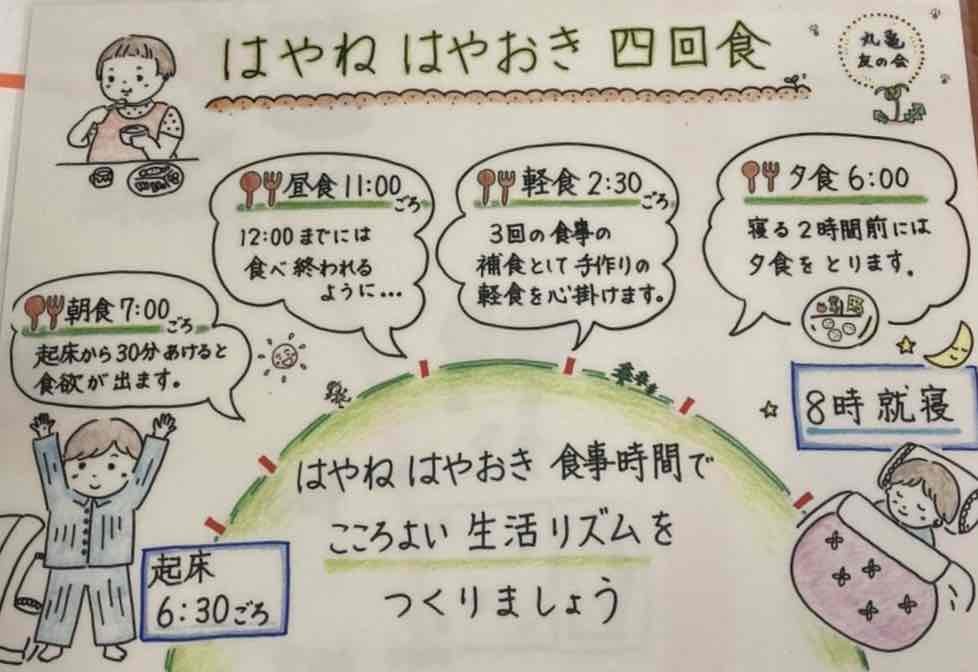 はやね はやおき 四回食
丸亀
友の会
昼食 11:00
ごろ
12:00 までには
食べ終われる
ように...
軽食 2:30
ごろ
3回の食事の
補食として手作りの
軽食を心掛けます。
夕食 6:00
寝る2時間前には
夕食をとります。
朝食 7:00
ごろ
起床から30分あけると
食欲が出ます。
8時就寝
はやね はやおき 食事時間で
こころよい 生活リズムを
つくりましょう
起床
6:30ごろ